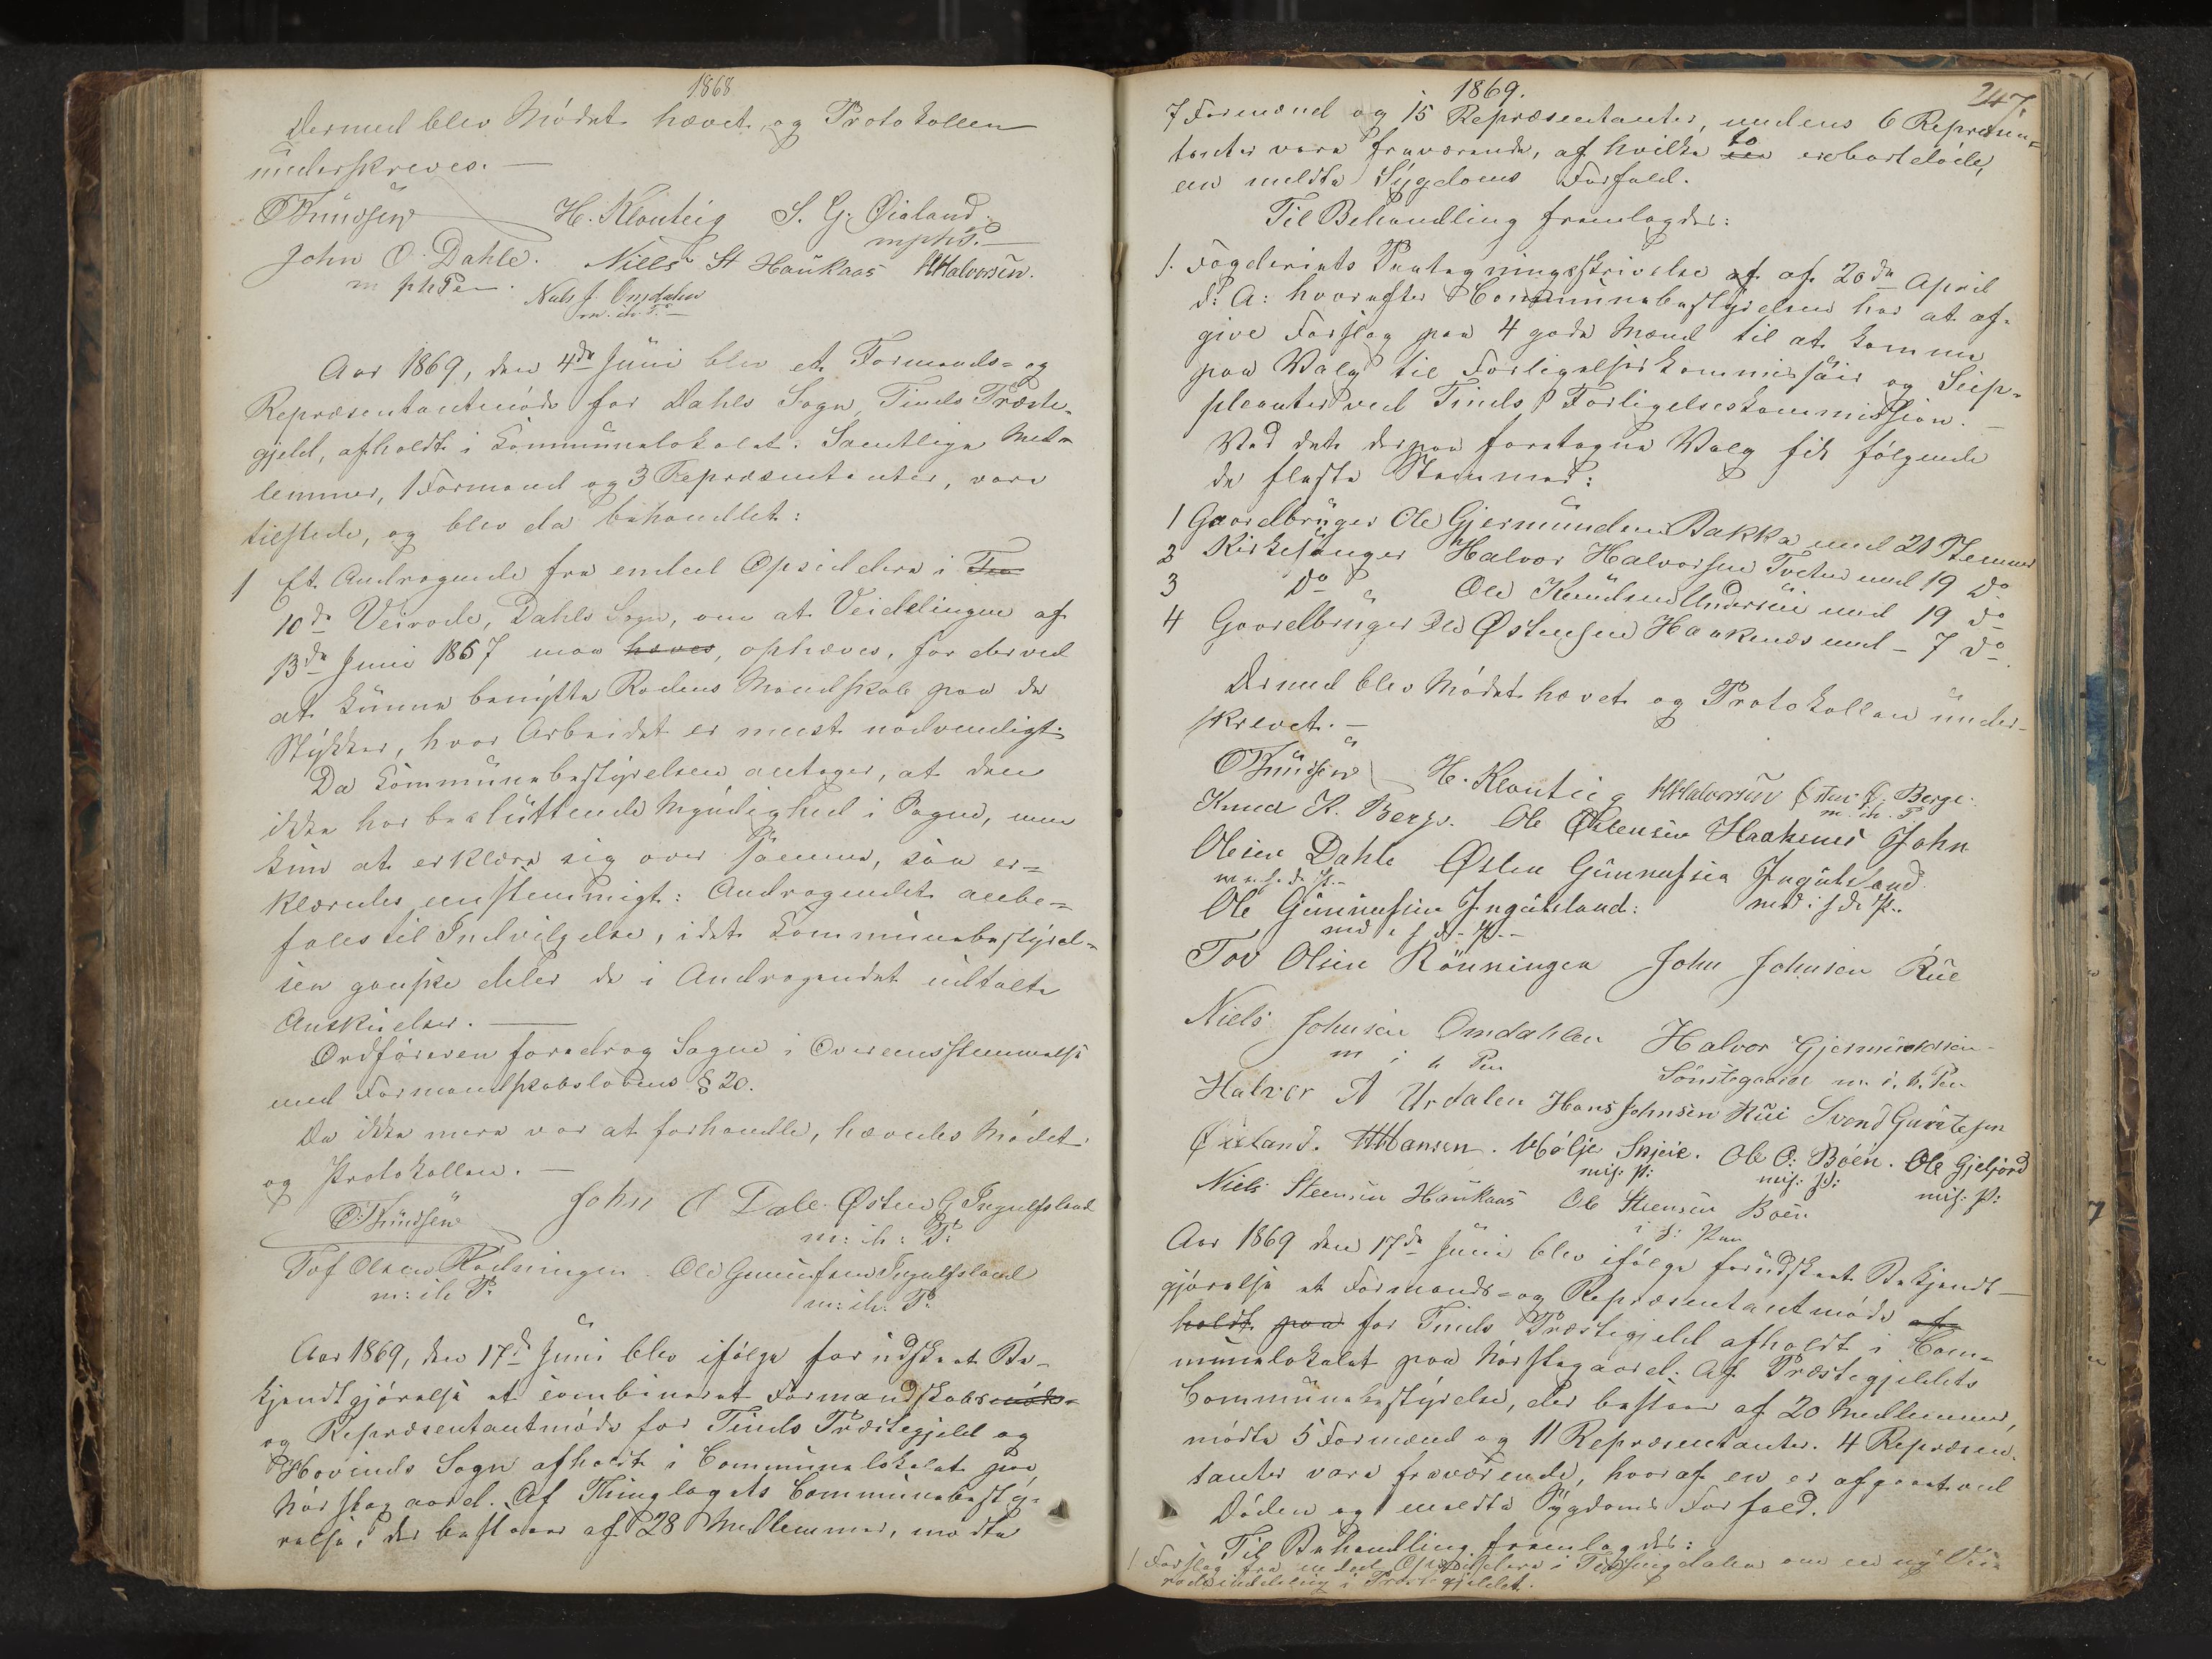 1868
Dermed blev Mødet hævet og Protokollen
underskreves. —
OKnudsen H. Klonteig S. G. Øialand.
mphP. —
John O. Dahle. Niels St Haukaas HHalvorsen.
m ph Pen. Niels J. Omdalen
m. ih. P. —
Aar 1869, den 4de Juni blev et Formands- og
Repræsentantmøde for Dahls Sogn, Tinds Præste-
gjeld, afholdt i Kommunelokalet. Samtlige Med-
lemmer, 1 Formand og 3 Repræsentanter, vare
tilstede, og blev da behandlet:
1 Et Andragende fra endeel Opsiddere i
10de Veirode, Dahls Sogn, om at Veidelingen af
13de Juni 1867 maa hæves, ophæves, for derved
at kunne benytte Rodens Mandskab paa de
Stykker, hvor Arbeidet er meest nødvendigt.
Da Kommunebestyrelsen antager, at den
ikke har besluttende Myndighed i Sagen, men
kun at erklære sig over samme, saa er-
klæredes enstemmigt: Andragendet anbe-
fales til Indvilgelse, idet Kommunebestyrel-
sen ganske deler de i Andragendet udtalte
Anskuelser. —
Ordføreren foredrog Sagen i Overeensstemmelse
med Formandskabslovens § 20.
Da ikke mere var at forhandle, hævedes Mødet
og Protokollen. —
O.Knudsen John O Dale. Østen G Ingulfsland
m: ih: P:
Tof Olsen Rødningen. Ole Gunnufsen Ingulfsland
m: ih P: m: ih: P:
Aar 1869, den 17de Juni blev ifølge forudskeet Be-
kjendtgjørelse et combineret Formandskabsmøde-
og Repræsentantmøde for Tinds Præstegjeld og
Hovinds Sogn afholdt i Communelokalet paa
Nørstegaard. Af Thinglagets Communebesty-
relse, der bestaar af 28 Medlemmer, mødte
1869.
247.
7 Formænd og 15 Repræsentanter, medens 6 Repræsen-
tanter vare fraværende, af hvilke to er bortdøde,
en meldte Sygdoms Forfald.
Til Behandling fremlagdes:
1. Fogderiets Paategningsskrivelse af af 20de April
d: A: hvorefter Communebestyrelsen har at af-
give Forslag paa 4 gode Mænd til at komme
paa Valg til Forligelseskommissair og Sup-
pleanter ved Tinds Forligelseskommission. —
Ved det derpaa foretagne Valg fik følgende
de fleste Stemmer:
1 Gaardbruger Ole Gjermundsen Bakka med 21 Stemmer
2 Kirkesanger Halvor Halvorsen Tveten med 19 do
3 do Ole Knudsen med 19 do
4 Gaardbruger Ole Østensen Haakenæs med - 7 do.
Dermed blev Mødet hævet og Protokollen under-
skrevet. —
OKnudsen H. Klonteig HHalvorsen Østen O. Berge.
m. ih. P
Knud K. Berge. Ole Østensen Haakenes John
Olsen Dahle Østen Gunnufsen Ingulsland
Ole Gunnufsen Ingulsland:
Tov Olsen Rönningen John Johnsen Rue
Niels Johnsen Omdahlen Halvor Gjermundsen
m i h Pen Sønstegaard m. i. h. Pen
Halvor A Urdalen Hans Johnsen Rui Svend Guutesen
Øialand. HHansen. Hölje Skjeie. Ole O: Böen. Ole Gjeljord
mif: P: mif: P: mif: P:
Niels Steensen Haukaas Ole Steensen Boen
Aar 1869 den 17de Juni blev ifølge forudskeet Bekjendt-
gjørelse et Formands- og Repræsentantmøde af-
holdt paa for Tinds Præstegjeld afholdt i Com-
munelokalet paa Nørstegaard. Af Præstegjeldets
Communebestyrelse, der bestaar af 20 Medlemmer,
mødte 5 Formænd og 11 Repræsentanter. 4 Repræsen-
tanter vare fraværende, hvoraf en er afgaaet ved
Døden og 1 meldte Sygdoms Forfald.
Til Behandling fremlagdes:
1. Forslag fra endeel Opsiddere i Tessungdalen om en ny Vei-
rodeinddeling i Præstegjeldet.